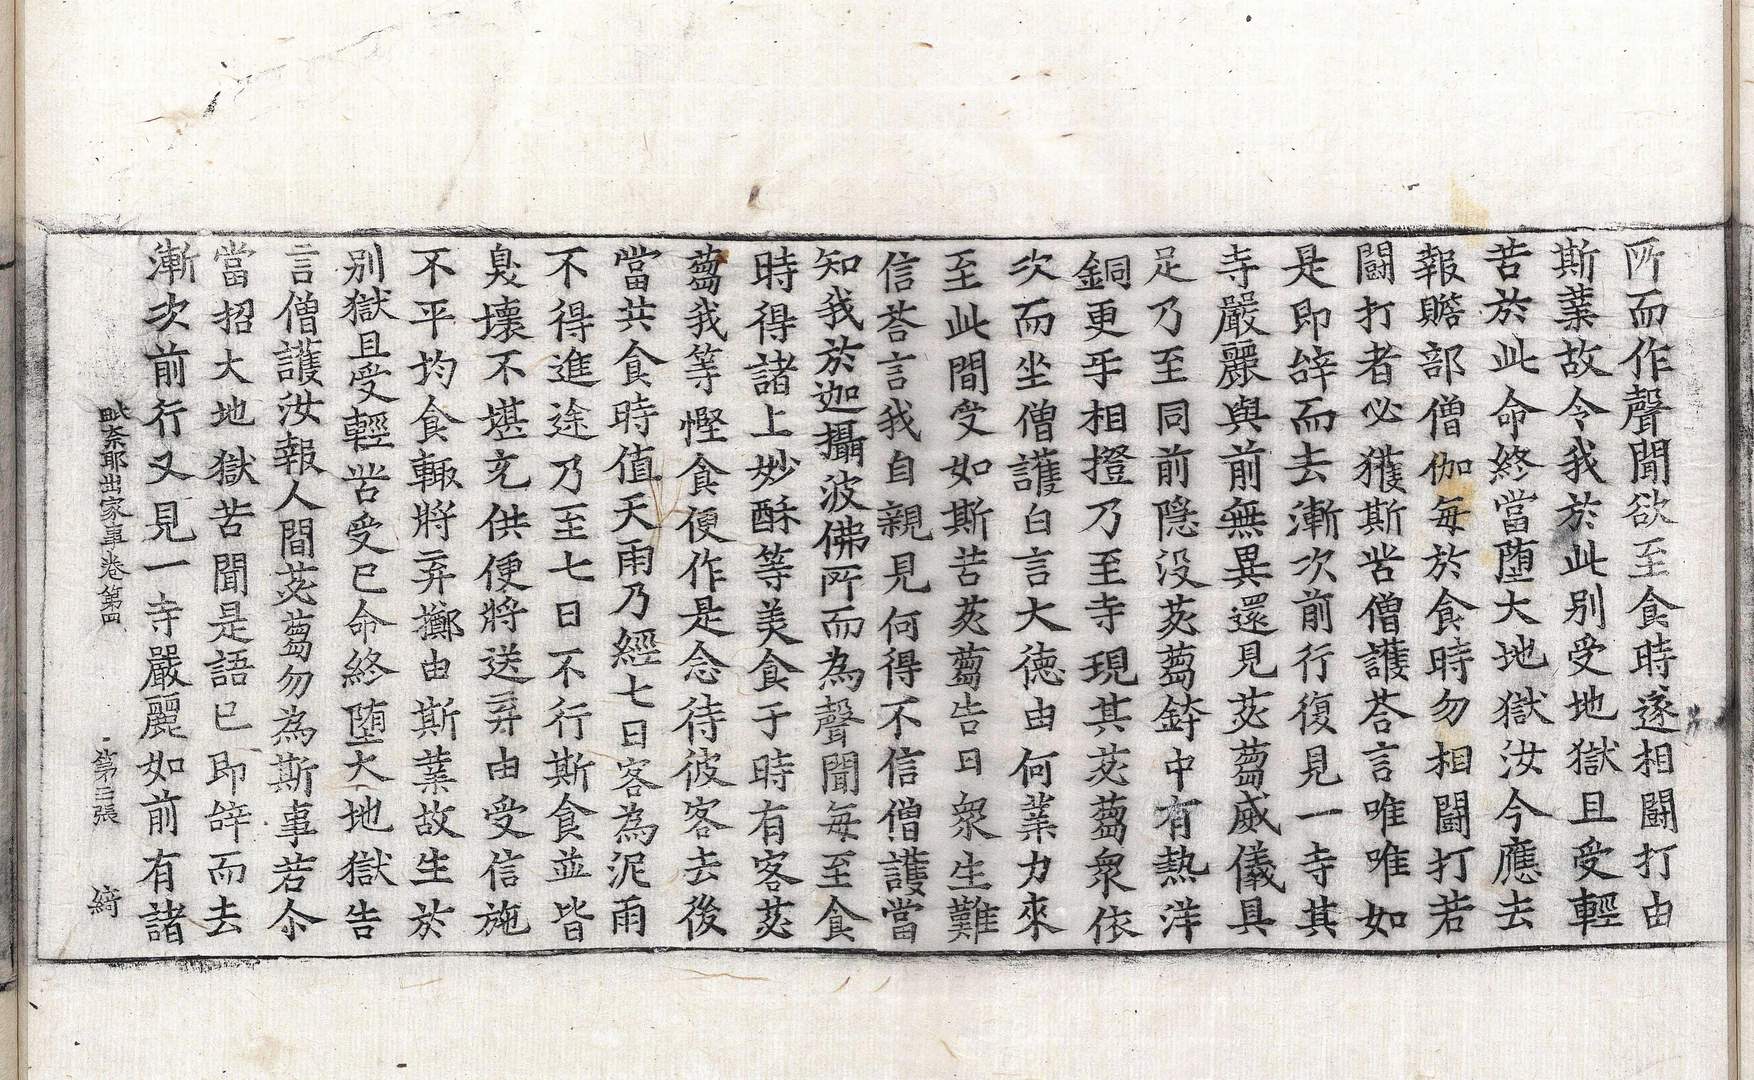 所而作聲聞欲至食時遂相鬪打由
斯業故令我於此別受地獄且受輕
苦於此命終當墮大地獄汝今應去
報贍部僧伽每於食時勿相鬪打若
鬪打者必獲斯苦僧護荅言唯唯如
是即辝而去漸次前行復見一寺其
寺嚴麗與前無異還見苾蒭威儀具
足乃至同前隠没苾蒭鉢中有熱洋
銅更乎相撜乃至寺現其苾蒭衆依
次而坐僧護白言大徳由何業力來
至此間受如斯苦苾蒭告曰衆生難
信荅言我自親見何得不信僧護當
知我於迦攝波佛所而為聲聞每至食
時得諸上妙酥等美食于時有客苾
蒭我等慳食便作是念待彼客去後
當共食時值天雨乃經七日客為泥雨
不得進途乃至七日不行斯食並皆
臭壞不堪充供便將送弃由受信施
不平均食輙將弃擲由斯業故生於
別獄且受輕苦受已命終墮大地獄告
言僧護汝報人間苾蒭勿為斯事若尒
當招大地獄苦聞是語已即辝而去
漸次前行又見一寺嚴麗如前有諸
毗奈耶出家事卷第四 第三張 綺